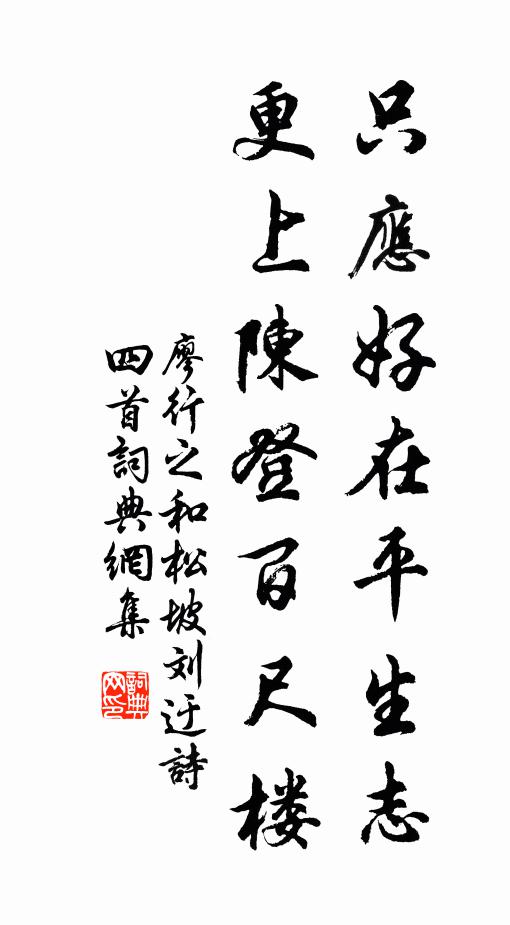 只應好在平生志
更上陳登百尺楼
廖行之和松坡刘迂詩
四首詞典網集
詞典网印